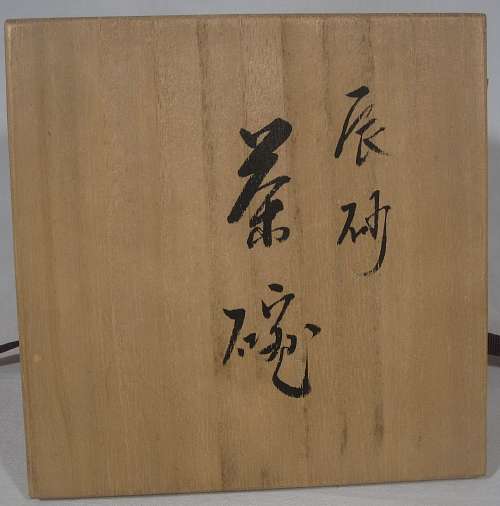 辰砂
茶碗